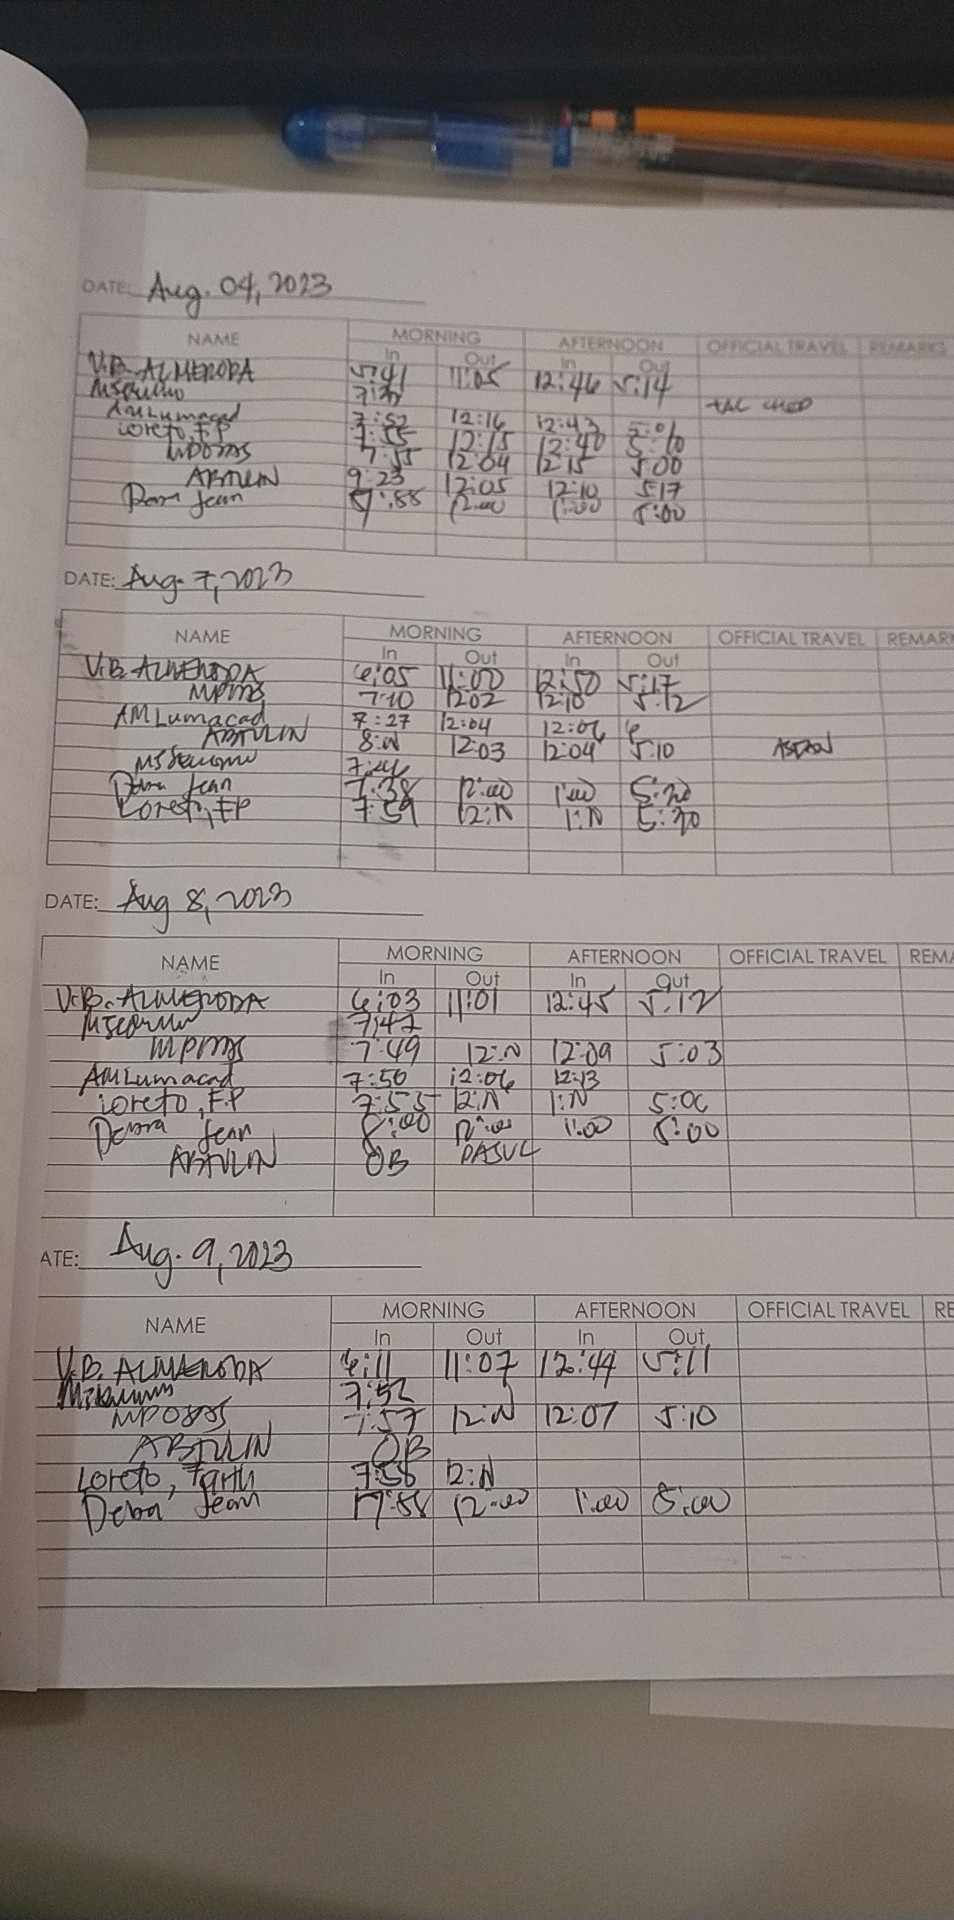 DATE: Aug. 04, 2023
NAME MORNING AFTERNOON OFFICIAL TRAVEL REMARKS
In Out In Out
V.B. ALMENODA 5:41 11:05 12:46 5:14
AMLumacad 7:52 12:16 12:43
Loreto, F.P 7:55 12:15 12:40 5:10
7:55 12:04 12:15 5:00
ABTULIN 9:23 12:05 12:10 5:17
Jean 12:00 1:00 5:00
DATE: Aug. 7, 2023
NAME MORNING AFTERNOON OFFICIAL TRAVEL REMAR
In Out In Out
V.B. ALMENODA 6:05 11:00 12:50 5:17
7:10 12:02 12:10 5:12
AMLumacad 7:27 12:04 12:06
ABTULIN 8:N 12:03 12:04 5:10
Jean 7:38 12:00 1:00 5:20
Loreto, F.P 7:59 12:N 1:N 5:20
DATE: Aug 8, 2023
NAME MORNING AFTERNOON OFFICIAL TRAVEL REMA
In Out In Out
V.B. ALMENODA 6:03 11:01 12:45 5:12
7:47
7:49 12:N 12:09 5:03
AMLumacad 7:50 12:06 12:13
Loreto, F.P 7:55 12:N 1:N 5:00
Jean 8:00 12:00 1:00 5:00
ABTULIN OB
ATE: Aug. 9, 2023
NAME MORNING AFTERNOON OFFICIAL TRAVEL RE
In Out In Out
V.B. ALMENODA 6:11 11:07 12:44 5:11
7:52
7:57 12:N 12:07 5:10
ABTULIN OB
Loreto, 7:58 12:N
Jean 12:00 1:00 5:00